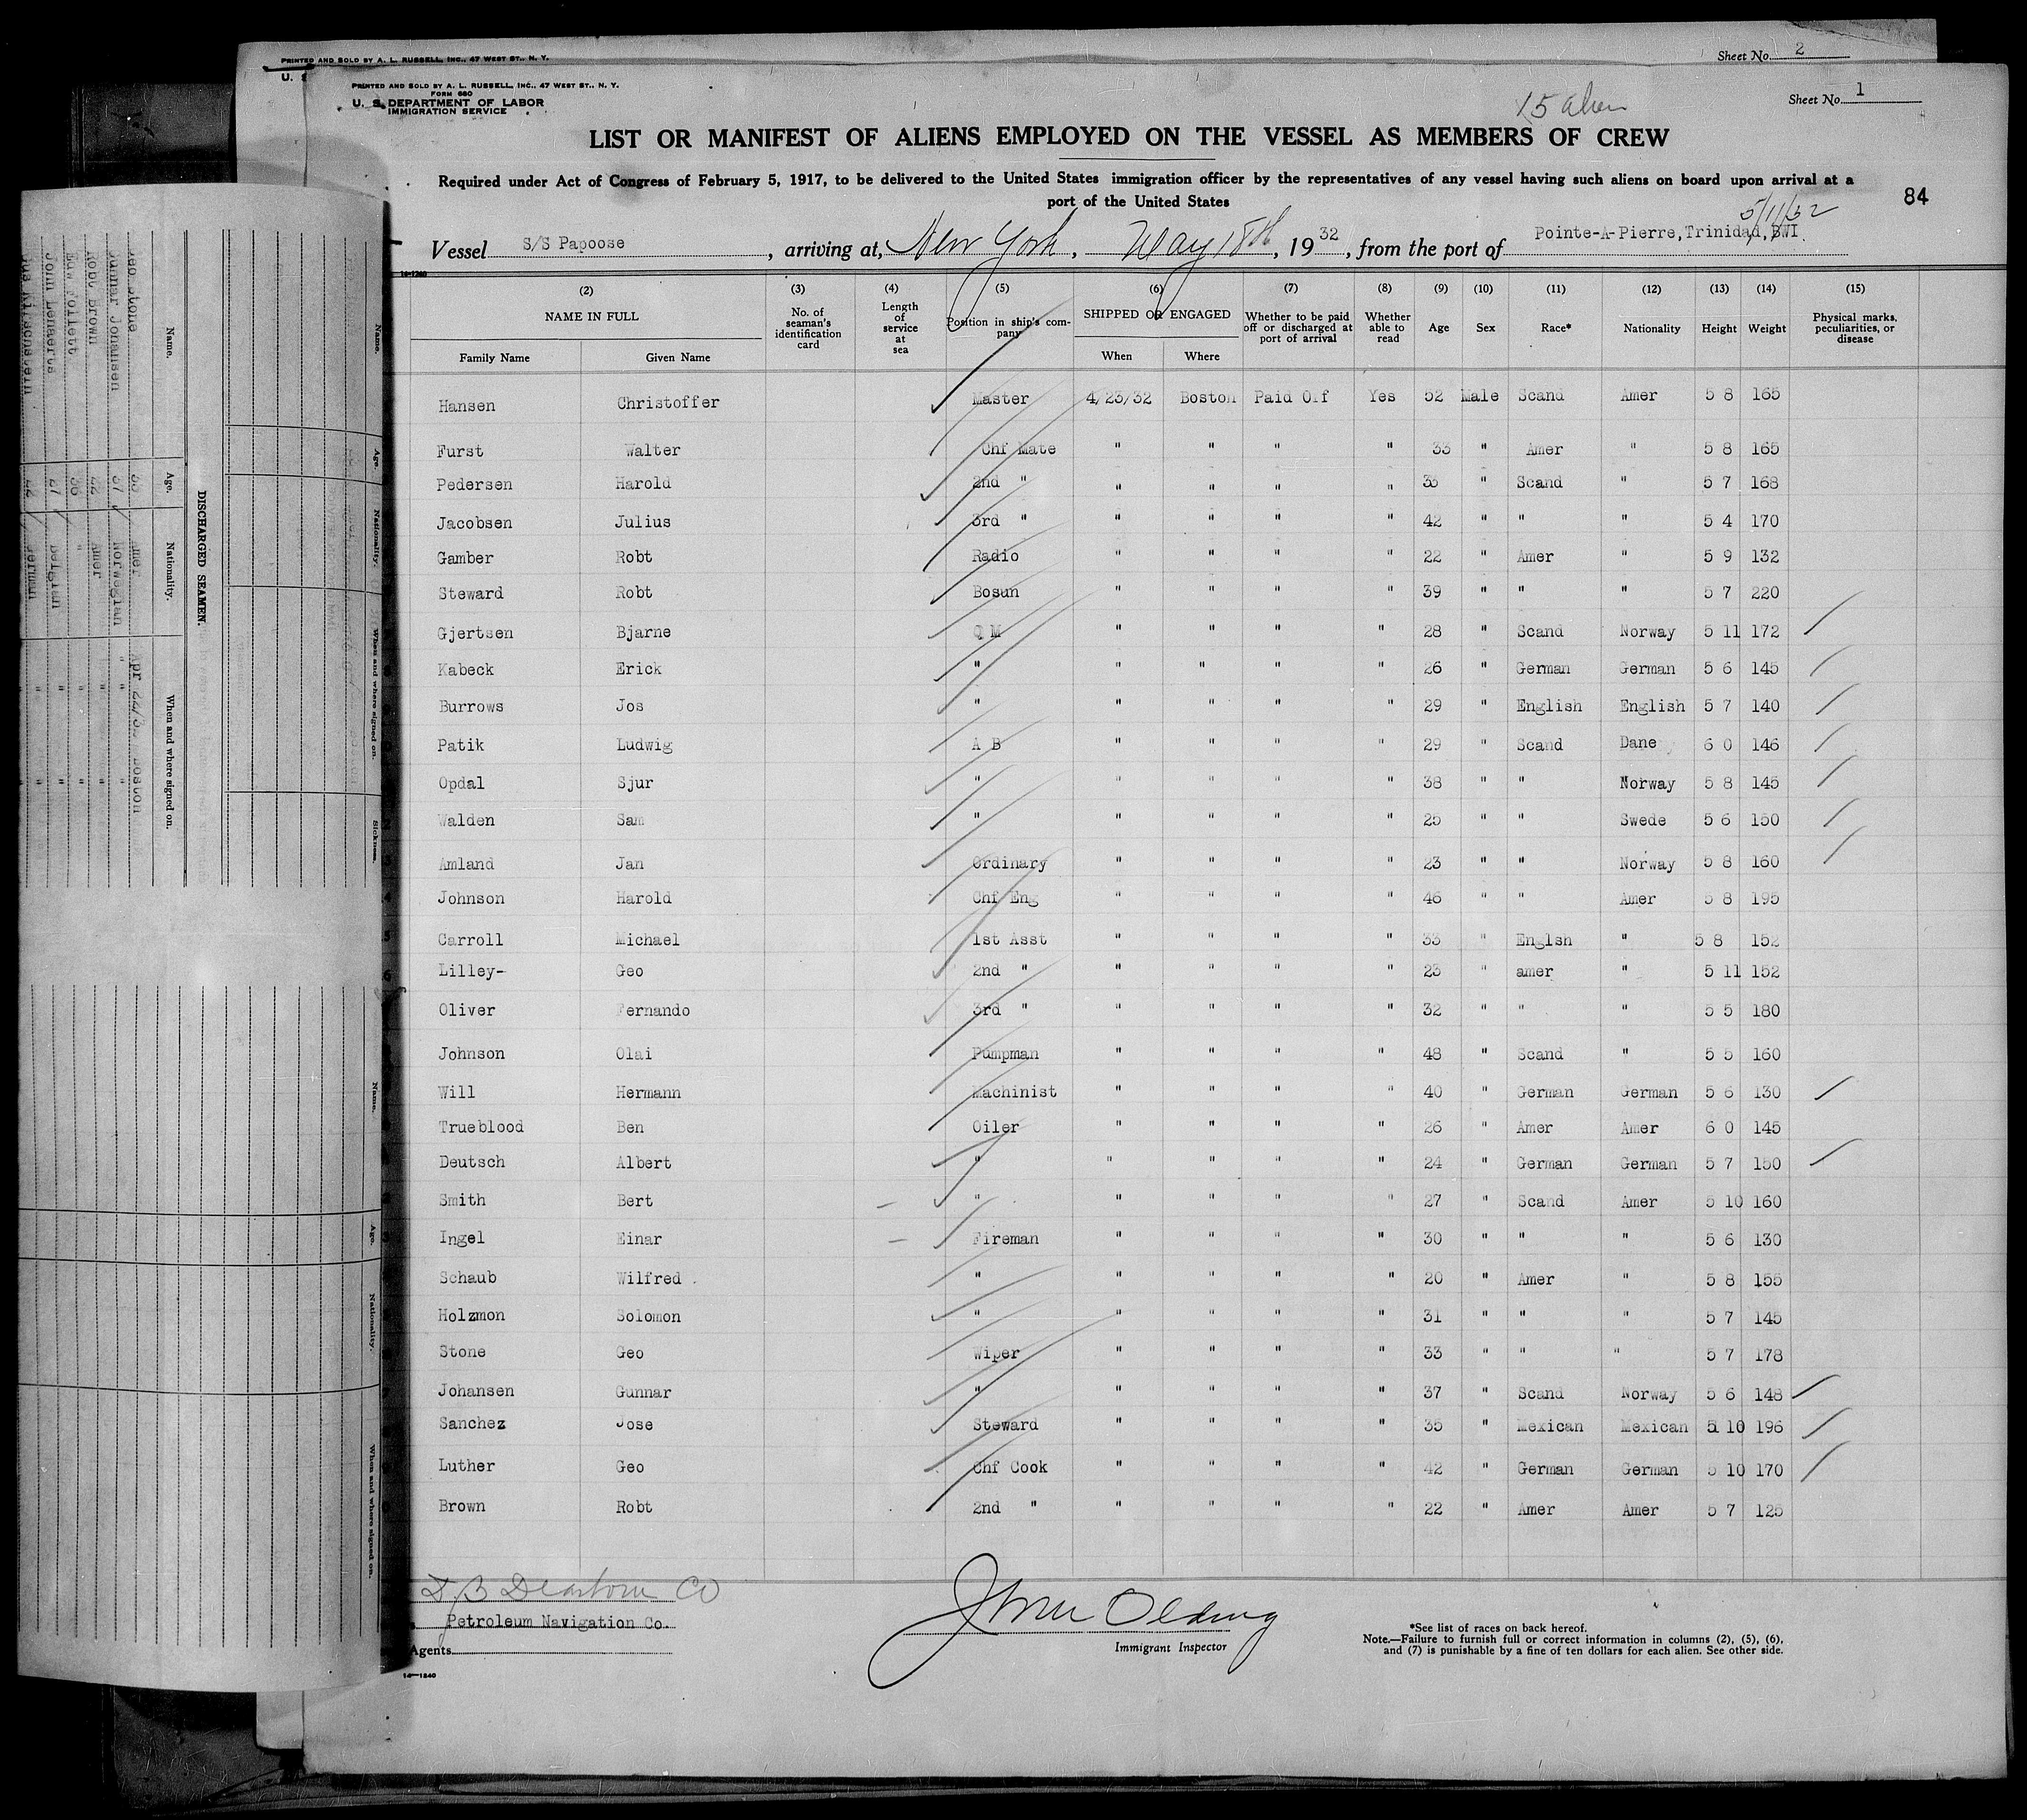 PRINTED AND SOLD BY A. L. RUSSELL, INC., 47 WEST ST., N. Y.
Sheet No. 2
U. S
PRINTED AND SOLD BY A. L. RUSSELL, INC., 47 WEST ST., N. Y.
FORM 680
U. S. DEPARTMENT OF LABOR
IMMIGRATION SERVICE
15 alien
Sheet No. 1
LIST OR MANIFEST OF ALIENS EMPLOYED ON THE VESSEL AS MEMBERS OF CREW
Required under Act of Congress of February 5, 1917, to be delivered to the United States immigration officer by the representatives of any vessel having such aliens on board upon arrival at a
port of the United States
84
5/11/32
Vessel S/S Papoose, arriving at, New York, May 18th, 1932, from the port of Pointe-A-Pierre, Trinidad, BWI.
14-1240
(2) (3) (4) (5) (6) (7) (8) (9) (10) (11) (12) (13) (14) (15)
NAME IN FULL No. of seaman's identification card Length of service at sea Position in ship's company SHIPPED OR ENGAGED Whether to be paid off or discharged at port of arrival Whether able to read Age Sex Race* Nationality Height Weight Physical marks, peculiarities, or disease
Family Name Given Name When Where
Hansen Christoffer Master 4/23/32 Boston Paid Off Yes 52 Male Scand Amer 5 8 165
Furst Walter Chf Mate " " " " 33 " Amer " 5 8 165
Pedersen Harold 2nd " " " " " 35 " Scand " 5 7 168
Jacobsen Julius 3rd " " " " " 42 " " " 5 4 170
Gamber Robt Radio " " " " 22 " Amer " 5 9 132
Steward Robt Bosun " " " " 39 " " " 5 7 220
Gjertsen Bjarne Q M " " " " 28 " Scand Norway 5 11 172
Kabeck Erick " " " " " 26 " German German 5 6 145
Burrows Jos " " " " " 29 " English English 5 7 140
Patik Ludwig A B " " " " 29 " Scand Dane 6 0 146
Opdal Sjur " " " " " 38 " " Norway 5 8 145
Walden Sam " " " " " 25 " " Swede 5 6 150
Amland Jan Ordinary " " " " 23 " " Norway 5 8 160
Johnson Harold Chf Eng " " " " 46 " " Amer 5 8 195
Carroll Michael 1st Asst " " " " 33 " Englsh " 5 8 152
Lilley- Geo 2nd " " " " " 23 " amer " 5 11 152
Oliver Fernando 3rd " " " " " 32 " " " 5 5 180
Johnson Olai Pumpman " " " " 48 " Scand " 5 5 160
Will Hermann Machinist " " " " 40 " German German 5 6 130
Trueblood Ben Oiler " " " " 26 " Amer Amer 6 0 145
Deutsch Albert " " " " " 24 " German German 5 7 150
Smith Bert " " " " " 27 " Scand Amer 5 10 160
Ingel Einar Fireman " " " " 30 " " " 5 6 130
Schaub Wilfred " " " " " 20 " Amer " 5 8 155
Holzmon Solomon " " " " " 31 " " " 5 7 145
Stone Geo Wiper " " " " 33 " " " 5 7 178
Johansen Gunnar " " " " " 37 " Scand Norway 5 6 148
Sanchez Jose Steward " " " " 35 " Mexican Mexican 5 10 196
Luther Geo Chf Cook " " " " 42 " German German 5 10 170
Brown Robt 2nd " " " " " 22 " Amer Amer 5 7 125
Petroleum Navigation Co.
Agents
14-1240
Immigrant Inspector
*See list of races on back hereof.
Note.—Failure to furnish full or correct information in columns (2), (5), (6),
and (7) is punishable by a fine of ten dollars for each alien. See other side.
DISCHARGED SEAMEN.
Name. Age. Nationality. When and where signed on.
Name. Age. Nationality. When and where signed on. Sickness.
Name. Age. Nationality. When and where signed on.